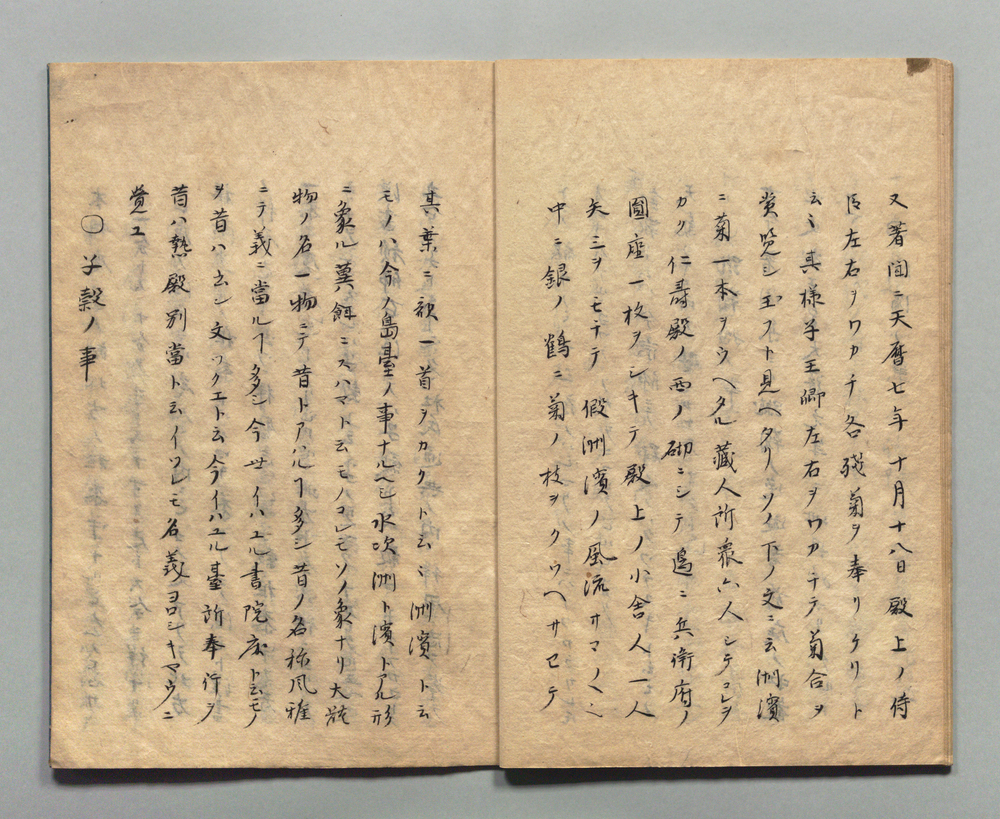 又著聞ニ天暦七年 十月十八日 殿上ノ侍
臣左右ヲワカチ各残菊ヲ奉リケリト
云々 其様子王卿左右ヲワカチテ菊合ヲ
覧シ玉フト見ヘタリソノ下ノ文ニ云洲濱
ニ菊一本ヲウヘタル藏人所衆六人シテコレヲ
カク仁壽殿ノ西ノ砌ニシテ邊ニ兵衛府ノ
圓座一枚ヲシキテ殿上ノ小舎人一人
矢三ヲモテテ 假洲濱ノ風流サマノヘ
中ニ銀ノ鶴ニ菊ノ枝ヲクワヘサセテ
其葉ニ歌一首ヲカクト云々 洲濱ト云
モノハ今ノ島臺ノ事ナルヘシ水次洲ト濱トアル形
ニ象ル菓餌ニスハマト云モノコレモソノ象ナリ大㧡
物ノ名一物ニテ昔トアハル多シ昔ノ名称風雅
ニテ義ニ當ルヿ多シ今世イハユル書院床ト云モノ
ヲ昔ハ出シ文ツクエト云今イハユル臺所奉行ヲ
昔ハ熟殿別當ト云イツレモ名義ヨロシキヤウニ
覚ユ
〇 子穀ノ事